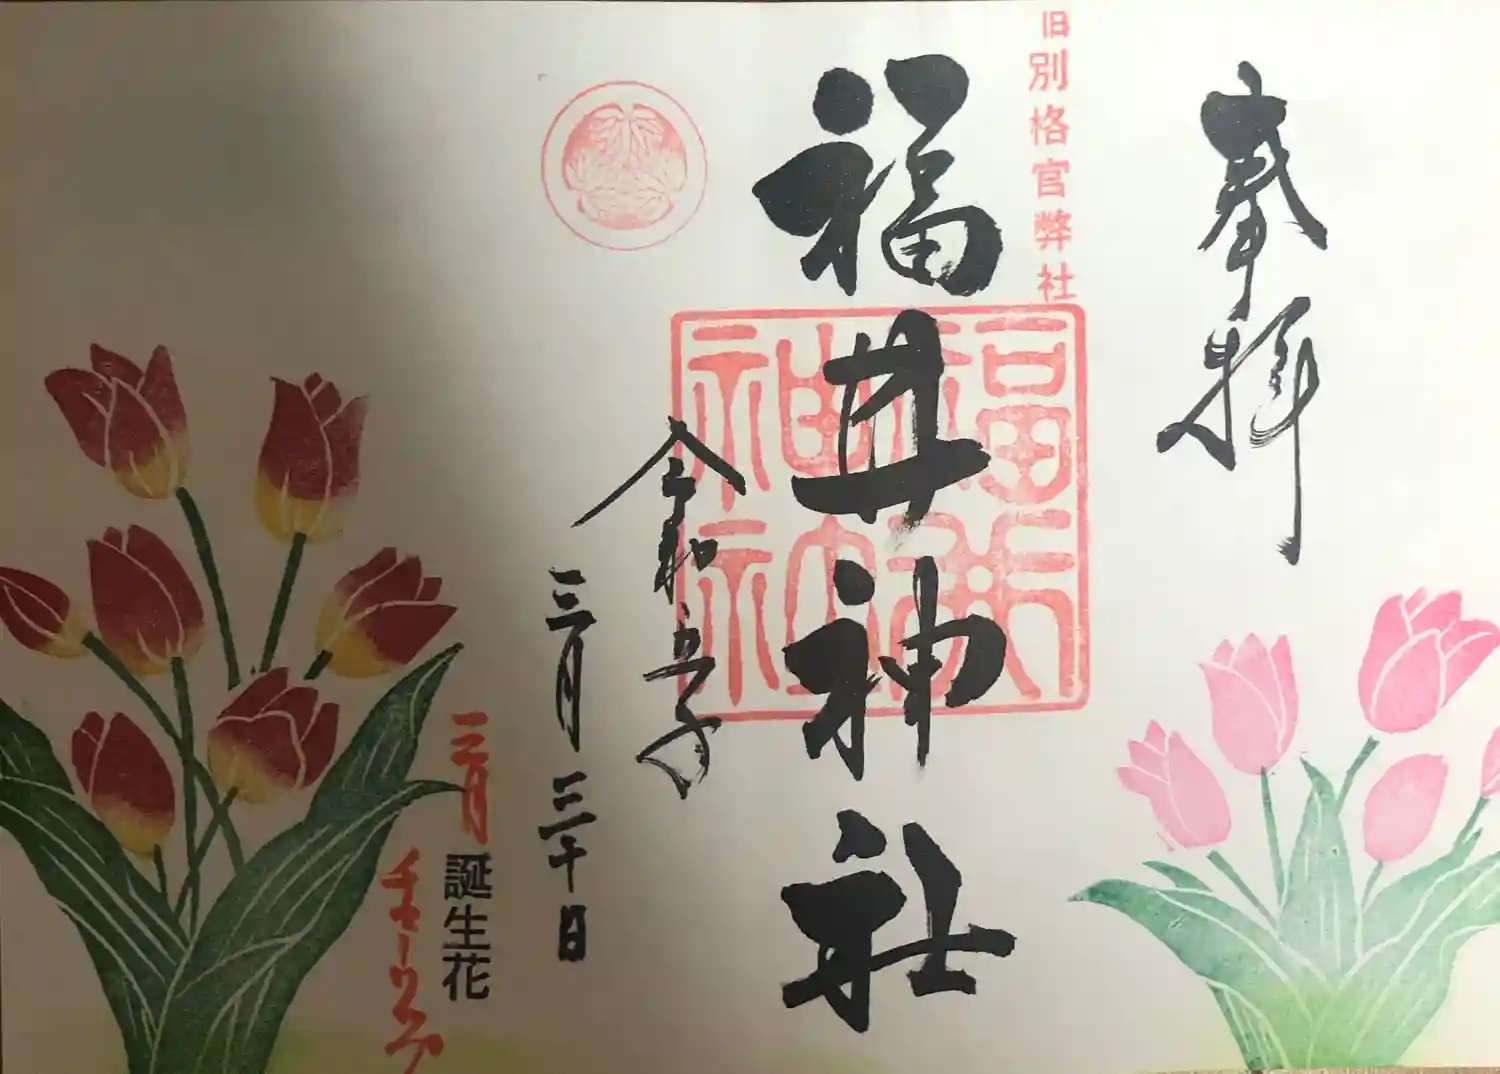 奉拝
旧別格官幣社
福井神社
福井神社
令和五年
三月三十日
三月誕生花
チューリップ